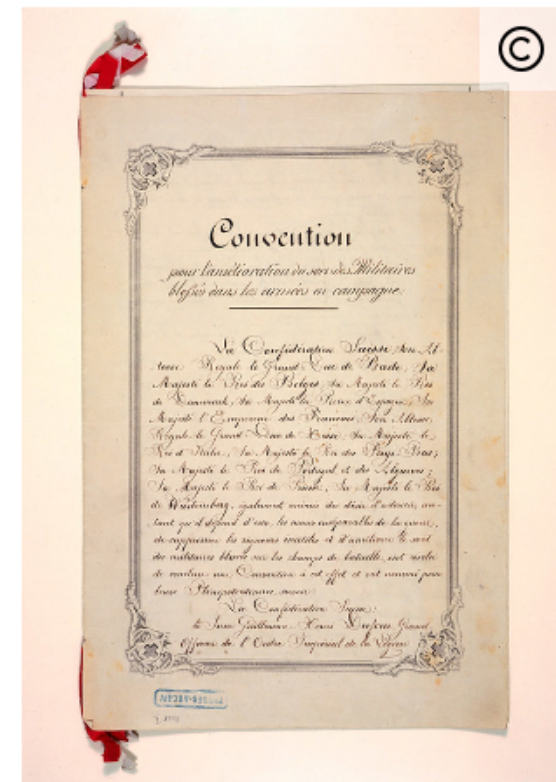 ©
Convention
pour l'amélioration du sort des Militaires
blessés dans les armées en campagne.
La Confédération Suisse, Son Al-
tesse Royale le Grand-Duc de Bade, Sa
Majesté le Roi des Belges, Sa Majesté le Roi
de Danemark, Sa Majesté la Reine d'Espagne, Sa
Majesté l'Empereur des Français, Son Altesse
Royale le Grand-Duc de Hesse, Sa Majesté le
Roi d'Italie, Sa Majesté le Roi des Pays-Bas,
Sa Majesté le Roi de Portugal et des Algarves,
Sa Majesté le Roi de Prusse, Sa Majesté le Roi
de Wurtemberg, également animés du désir d'adoucir, au-
tant qu'il dépend d'eux, les maux inséparables de la guerre,
de supprimer les rigueurs inutiles et d'améliorer le sort
des militaires blessés sur les champs de bataille, ont résolu
de conclure une Convention à cet effet et ont nommé pour
leurs Plénipotentiaires, savoir:
La Confédération Suisse:
le Sieur Guillaume-Henri Dufour, Grand
Officier de l'Ordre Impérial de la Légion